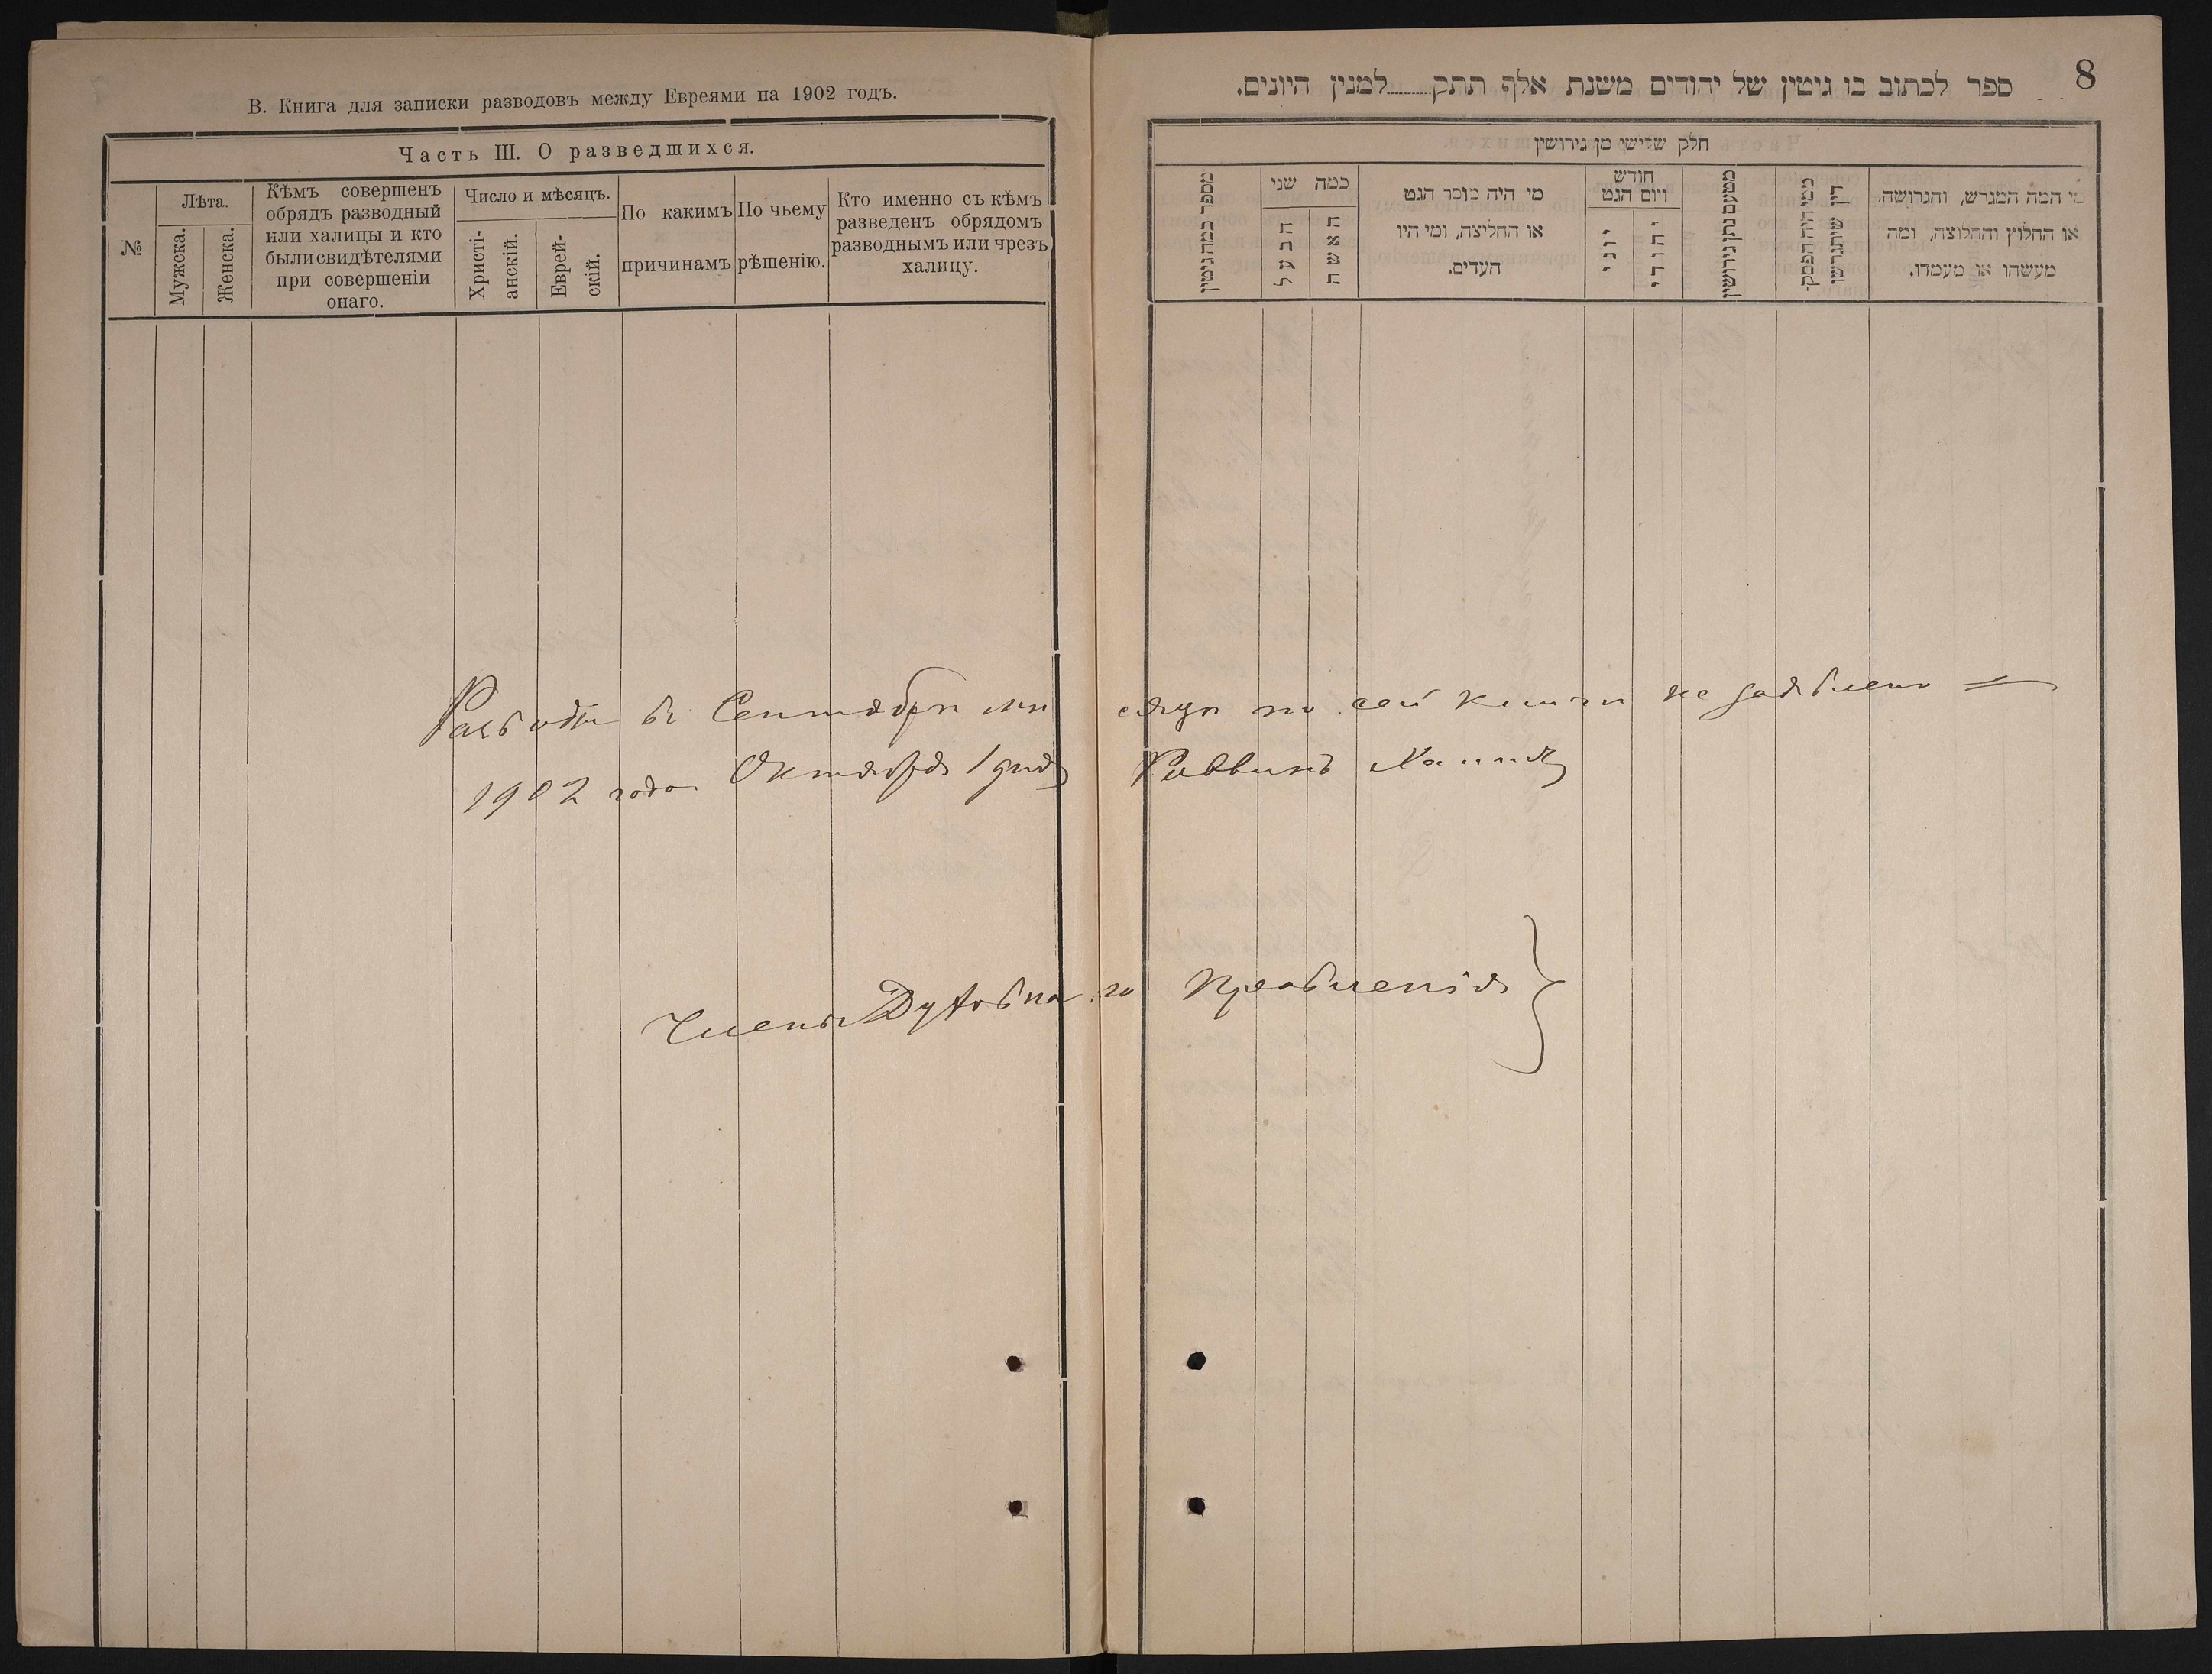 В. Книга для записки разводовъ между Евреями на 1902 годъ.
Часть III. О разведшихся.
№
Лѣта.
Мужска.
Женска.
Кѣмъ совершенъ
обрядъ разводный
или халицы и кто
были свидѣтелями
при совершеніи
онаго.
Число и мѣсяцъ.
Христі-
анскій.
Еврей-
скій.
По какимъ
причинамъ
По чьему
рѣшенію.
Кто именно съ кѣмъ
разведенъ обрядомъ
разводнымъ или чрезъ
халицу.
8
ספר לכתוב בו גיטין של יהודים משנת אלף תתק........למנין היונים.
חלק שלישי מן גירושין
מספר כמה גיטין
כמה שני
הבעל
האשה
מי היה מוסר הגט
או החליצה, ומי היו
העדים.
חודש
ויום הגט
יוני
יהודי
מטעם נתן גירושין
ממי היה הפסק-
דין שיתגרשו
מי המה המגרש, והגרושה,
או החלוץ והחלוצה, ומה
מעשהו או מעמדו.
въ Сентябрѣ мѣсяцѣ по сей не заявлено
1902 года Октября 1 дня Раввинъ
Члены Духовнаго Правленія